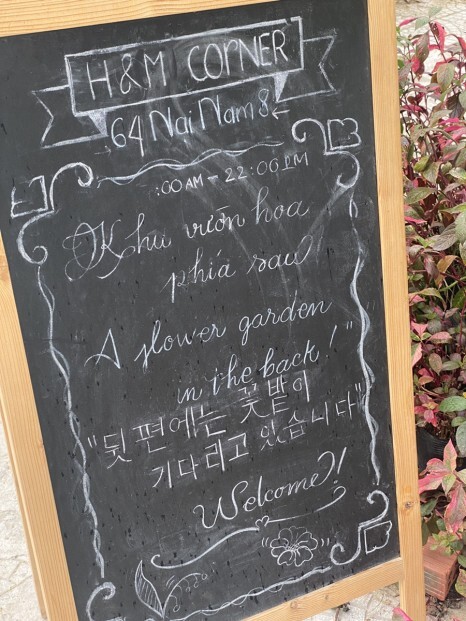 H&M CORNER
64 Nai Nam 8
:00 AM - 22:00 PM
Khu vườn hoa
phía sau!
A flower garden
in the back!"
"뒷편에는 꽃밭이
기다리고 있습니다"
Welcome!